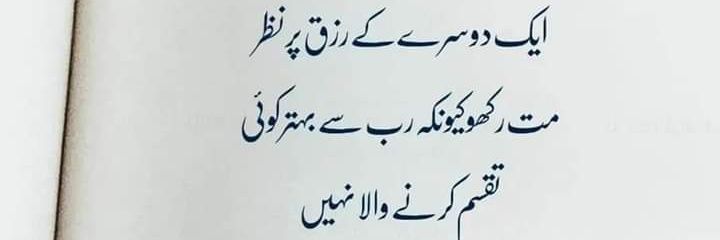 ایک دوسرے کے رزق پر نظر
مت رکھو کیونکہ رب سے بہتر کوئی
تقسم کرنے والا نہیں